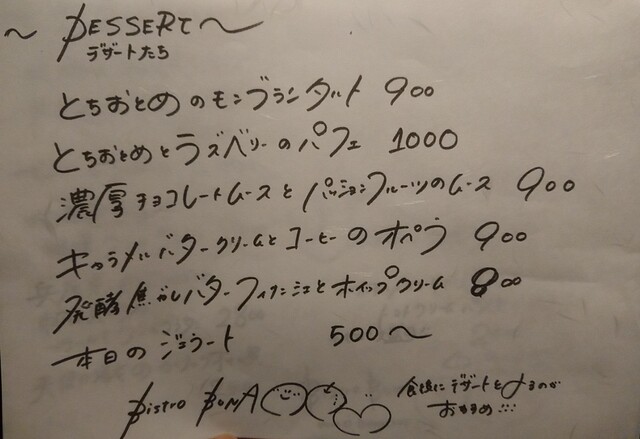 ~ DESSERT ~
デザートたち
とちおとめのモンブランタルト 900
とちおとめとラズベリーのパフェ 1000
濃厚チョコレートムースとパッションフルーツのムース 900
キャラメルバタークリームとコーヒーのオペラ 900
発酵焦がしバターフィナンシェとホイップクリーム 800
本日のジェラート 500~
Bistro BONA
食後にデザートを
おすすめ